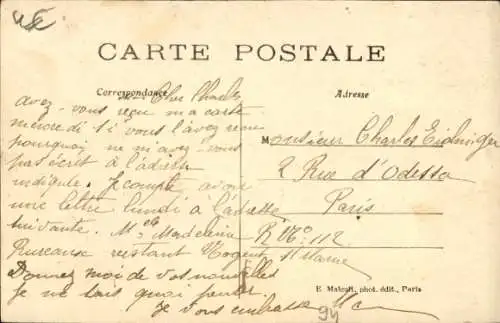 CARTE POSTALE
Correspondance
Adresse
Cher Charles
avez-vous reçu ma carte
mercredi Si vous l'avez reçu
pourquoi ne m'avez-vous
pas écrit à l'adresse
indiquée. Je compte avoir
une lettre lundi à l'adresse
suivante. Mlle Madeleine
Bureaux restant Nogent s/Marne
Donnez moi de vos nouvelles
Je ne sais quoi penser.
Je vous embrasse
Monsieur Charles
2 Rue d'Odessa
Paris
R No 112
E. Malcuit, phot. édit., Paris
94